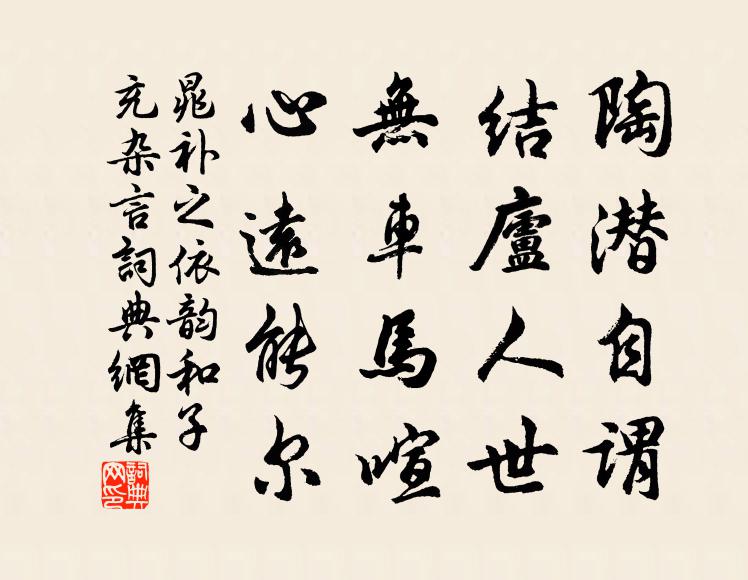 陶潜自谓
结廬人世
無車馬喧
心遠能尔
晁补之依韵和子
充杂言詞典網集
詞典网印